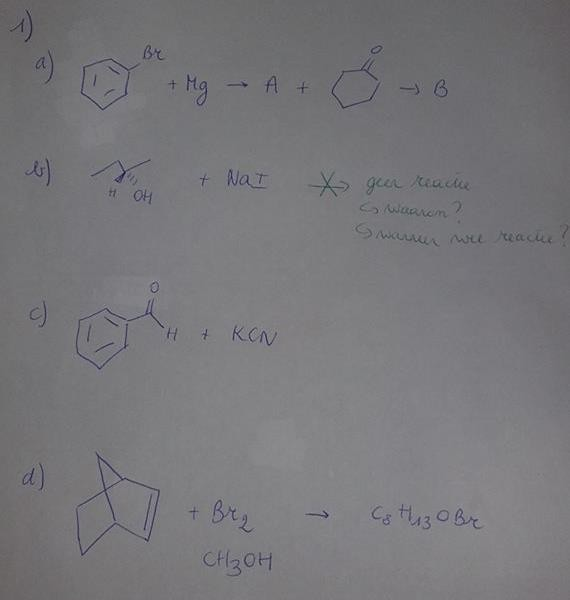 1)
a) Br
+ Mg → A + O → B
b) H OH + NaI geen reactie
↳ waarom?
↳ wanneer wel reactie?
c) O H + KCN
d) + Br2 → C8H13OBr
CH3OH